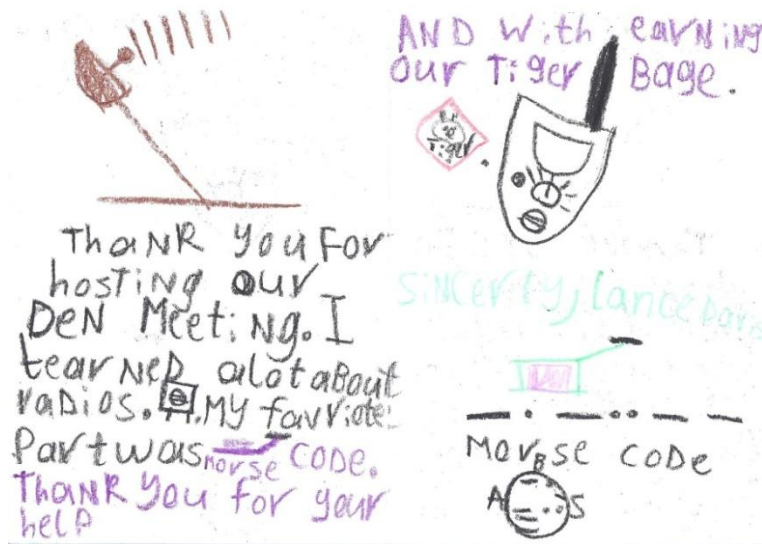 ThaNk You For
hosTiNg our
DeN MeetiNg. I
learNeD alotaBouT
raDios. My favriote
Part was morse CoDe.
ThaNk You for your
help
AND With earNiNg
our Tiger Bage.
Tiger
SiNcerly, lance Daris
Morse CoDe
B
A S